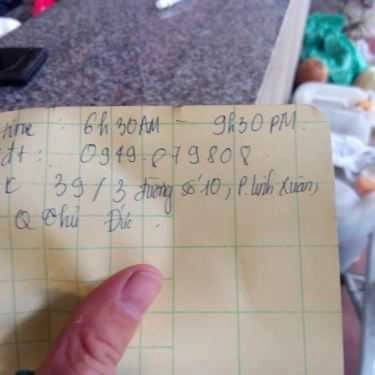 time : 6h30AM - 9h30PM.
đt : 0949.879808
39/3 đường số 10, P. linh Xuân,
Q Thủ Đức.